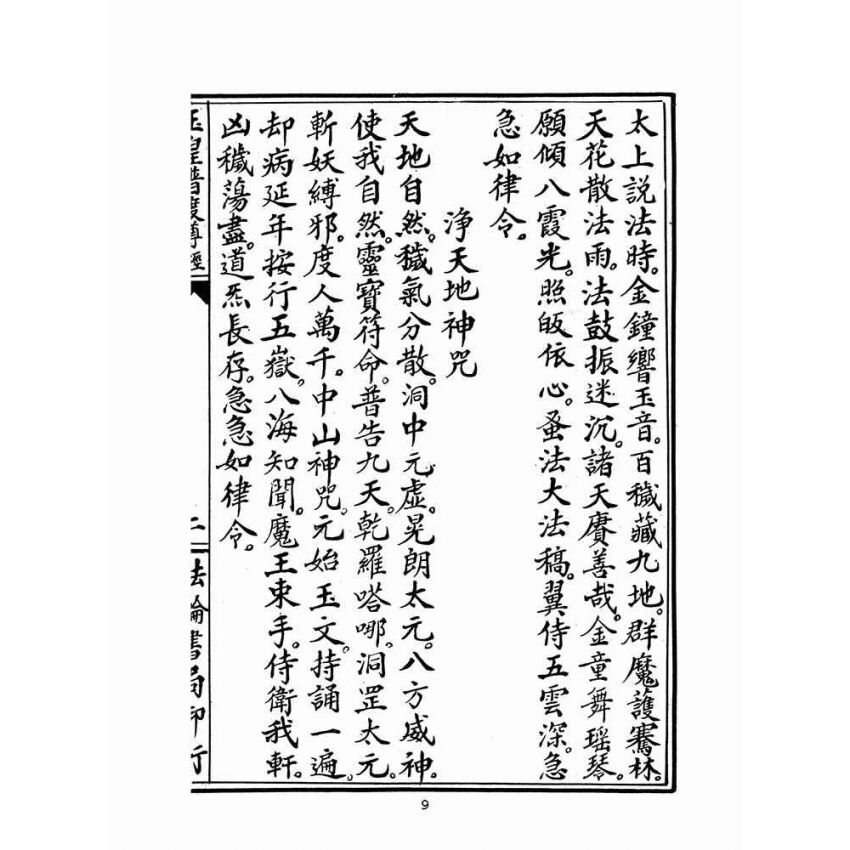 太上説法時。金鐘響玉音。百穢藏九地。群魔護騫林。
天花散法雨。法鼓振迷沉。諸天賡善哉。金童舞瑶琴。
願傾八霞光。照皈依心。蚤法大法稿。翼侍五雲深。急
急如律令。
浄天地神咒
天地自然。穢氣分散。洞中元虛。晃朗太元。八方威神。
使我自然。靈寶符命。普告九天。乾羅嗒哪。洞罡太元。
斬妖縛邪。度人萬千。中山神咒。元始玉文。持誦一遍。
却病延年按行五嶽。八海知聞。魔王束手。侍衛我軒。
凶穢蕩盡。道炁長存。急急如律令。
玉皇普度尊經
二
法輪書局印行
9